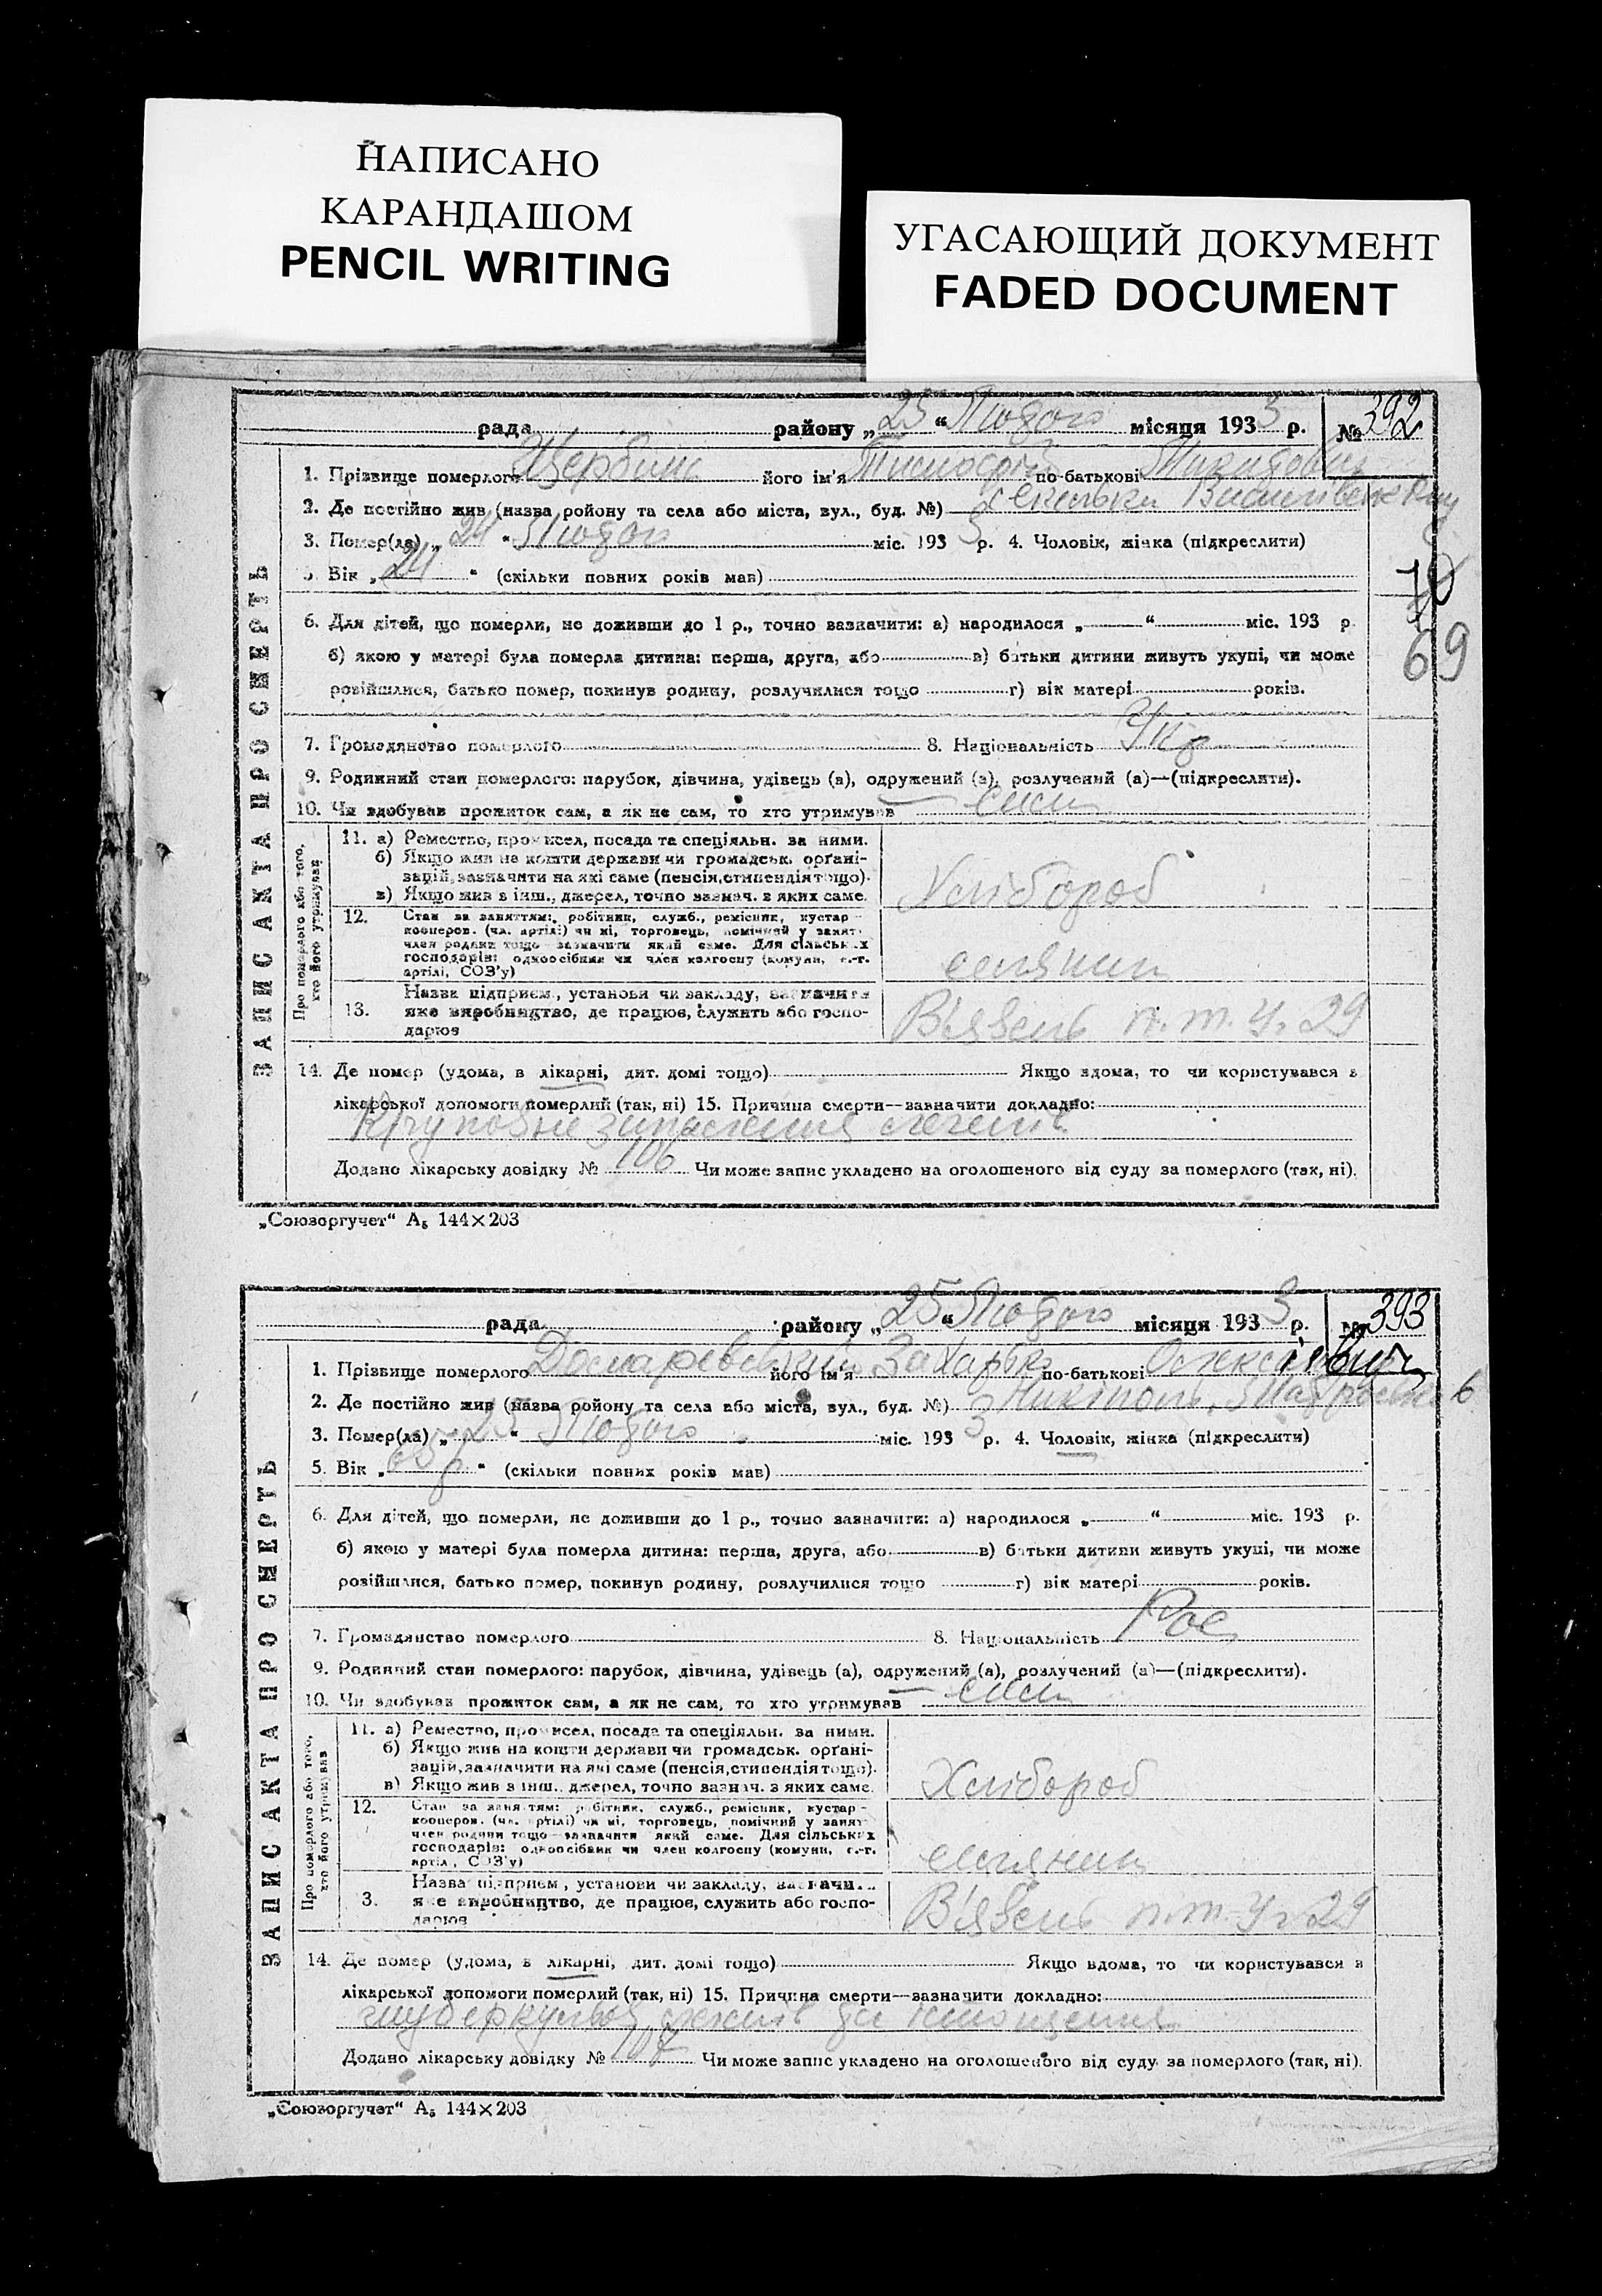 НАПИСАНО
КАРАНДАШОМ
PENCIL WRITING
УГАСАЮЩИЙ ДОКУМЕНТ
FADED DOCUMENT
рада району „ 25 “ Лютого місяця 193 3 р. № 392
1. Прізвище померлого Щербина його ім'я Тимофій по-батькові Микитович
2. Де постійно жив (назва ройону та села або міста, вул., буд. №)
3. Помер(ла) „ 24 “ Лютого міс. 193 3 р. 4. Чоловік, жінка (підкреслити)
5. Вік „ 24 “ (скільки повних років мав)
70
69
6. Для дітей, що померли, не доживши до 1 р., точно зазначити: а) народилося „ “ міс. 193 р.
б) якою у матері була померла дитина: перша, друга, або в) батьки дитини живуть укупі, чи може
розійшлися, батько помер, покинув родину, розлучилися тощо г) вік матері років.
7. Громадянство померлого 8. Національність Укр
9. Родинний стан померлого: парубок, дівчина, удівець (а), одружений (а), розлучений (а)—(підкреслити).
10. Чи здобував прожиток сам, а як не сам, то хто утримував сам
ЗАПИС АКТА ПРО СМЕРТЬ
Про померлого або того, хто його утримував
11. а) Ремество, промисел, посада та спеціяльн. за ними.
б) Якщо жив на кошти держави чи громадськ. орґані-
зацій, зазначити на які саме (пенсія, стипендія тощо).
в) Якщо жив з інш., джерел, точно зазнач. з яких саме.
Хлібороб
12. Стан за заняттям: робітник, служб., ремісник, кустар -
кооперов. (чл. артілі) чи ні, торговець, помічний у занят-
член родини тощо—зазначити який саме. Для сільських
господарів: одноосібник чи член колгоспу (комуни, с.-г.
артілі, СОЗ'у)
селянин
13. Назва підприєм., установи чи закладу, зазначити
яке виробництво, де працює, служить або госпо-
дарює
В'язень п.т.у. 29
14. Де помер (удома, в лікарні, дит. домі тощо) Якщо вдома, то чи користувався з
лікарської допомоги померлий (так, ні) 15. Причина смерти—зазначити докладно:
Крупозне запалення легенів
Додано лікарську довідку № 106 Чи може запис укладено на оголошеного від суду за померлого (так, ні).
„Союзоргучет“ А₅ 144×203
рада району „ 25 “ Лютого місяця 193 3 р. № 393
1. Прізвище померлого його ім'я Захарько по-батькові
2. Де постійно жив (назва ройону та села або міста, вул., буд. №) Нікіполь,
3. Помер(ла) „ 25 “ Лютого міс. 193 3 р. 4. Чоловік, жінка (підкреслити)
5. Вік „ 65 р. “ (скільки повних років мав)
6. Для дітей, що померли, не доживши до 1 р., точно зазначити: а) народилося „ “ міс. 193 р.
б) якою у матері була померла дитина: перша, друга, або в) батьки дитини живуть укупі, чи може
розійшлися, батько помер, покинув родину, розлучилися тощо г) вік матері років.
7. Громадянство померлого 8. Національність Рос
9. Родинний стан померлого: парубок, дівчина, удівець (а), одружений (а), розлучений (а)—(підкреслити).
10. Чи здобував прожиток сам, а як не сам, то хто утримував сам
ЗАПИС АКТА ПРО СМЕРТЬ
Про померлого або того, хто його утримував
11. а) Ремество, промисел, посада та спеціяльн. за ними.
б) Якщо жив на кошти держави чи громадськ. орґані-
зацій, зазначити на які саме (пенсія, стипендія тощо).
в) Якщо жив з інш., джерел, точно зазнач. з яких саме.
Хлібороб
12. Стан за заняттям: робітник, служб., ремісник, кустар -
кооперов. (чл. артілі) чи ні, торговець, помічний у занят-
член родини тощо—зазначити який саме. Для сільських
господарів: одноосібник чи член колгоспу (комуни, с.-г.
артілі, СОЗ'у)
селянин
3. Назва підприєм., установи чи закладу, зазначи
яке виробництво, де працює, служить або госпо-
дарює
В'язень п.т.у. 29
14. Де помер (удома, в лікарні, дит. домі тощо) Якщо вдома, то чи користувався з
лікарської допомоги померлий (так, ні) 15. Причина смерти—зазначити докладно:
туберкульоз легенів
Додано лікарську довідку № 107 Чи може запис укладено на оголошеного від суду за померлого (так, ні).
„Союзоргучет“ А₅ 144×203